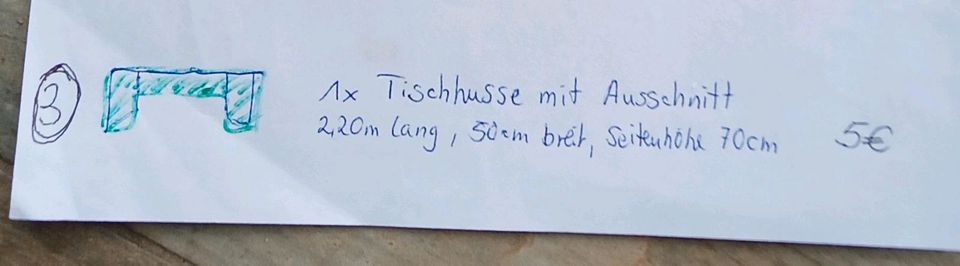 3
1x Tischhusse mit Ausschnitt
2,20m lang, 50cm breit, Seitenhöhe 70cm 5€